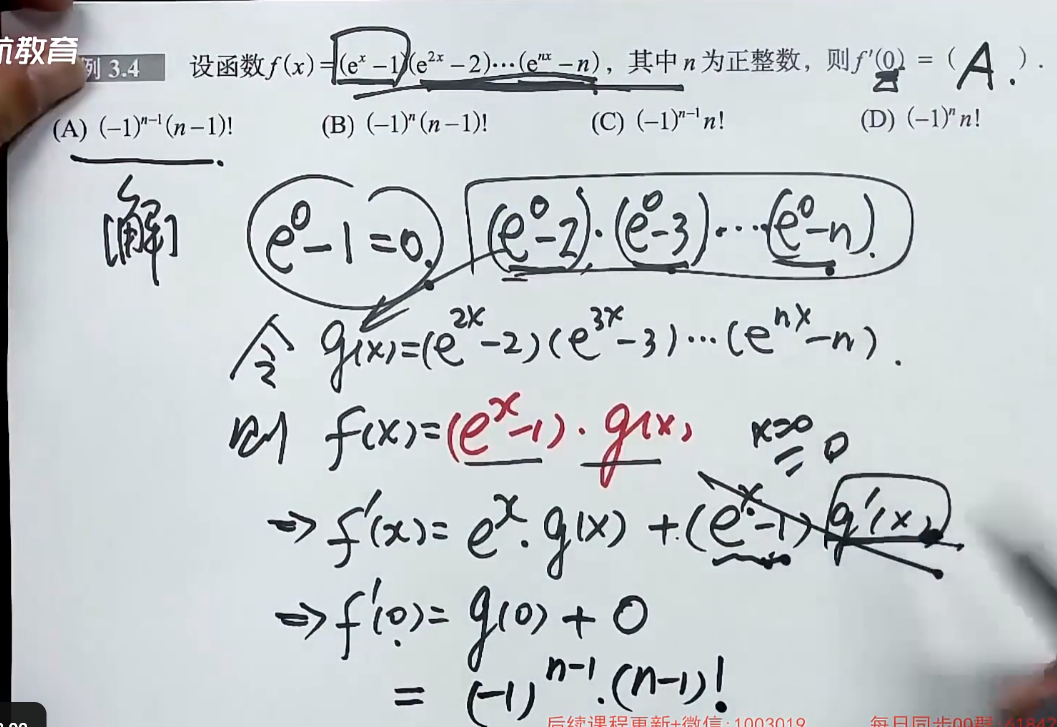 航教育
例 3.4 设函数f(x)=(eˣ−1)(e²ˣ−2)⋯(eⁿˣ−n), 其中 n 为正整数, 则f′(0) = ( A. ).
(A) (−1)ⁿ⁻¹(n−1)! (B) (−1)ⁿ(n−1)! (C) (−1)ⁿ⁻¹n! (D) (−1)ⁿn!
[解] e⁰−1=0. (e⁰−2)·(e⁰−3)⋯(e⁰−n).
令 g(x)=(e²ˣ−2)(e³ˣ−3)⋯(eⁿˣ−n).
则 f(x)=(eˣ−1)·g(x) x=0 0
⇒ f′(x)= eˣ·g(x) + (eˣ−1) g′(x)
⇒ f′(0)= g(0) + 0
= (−1)ⁿ⁻¹·(n−1)!
后续课程更新+微信:1003019 每日同步00群:4184